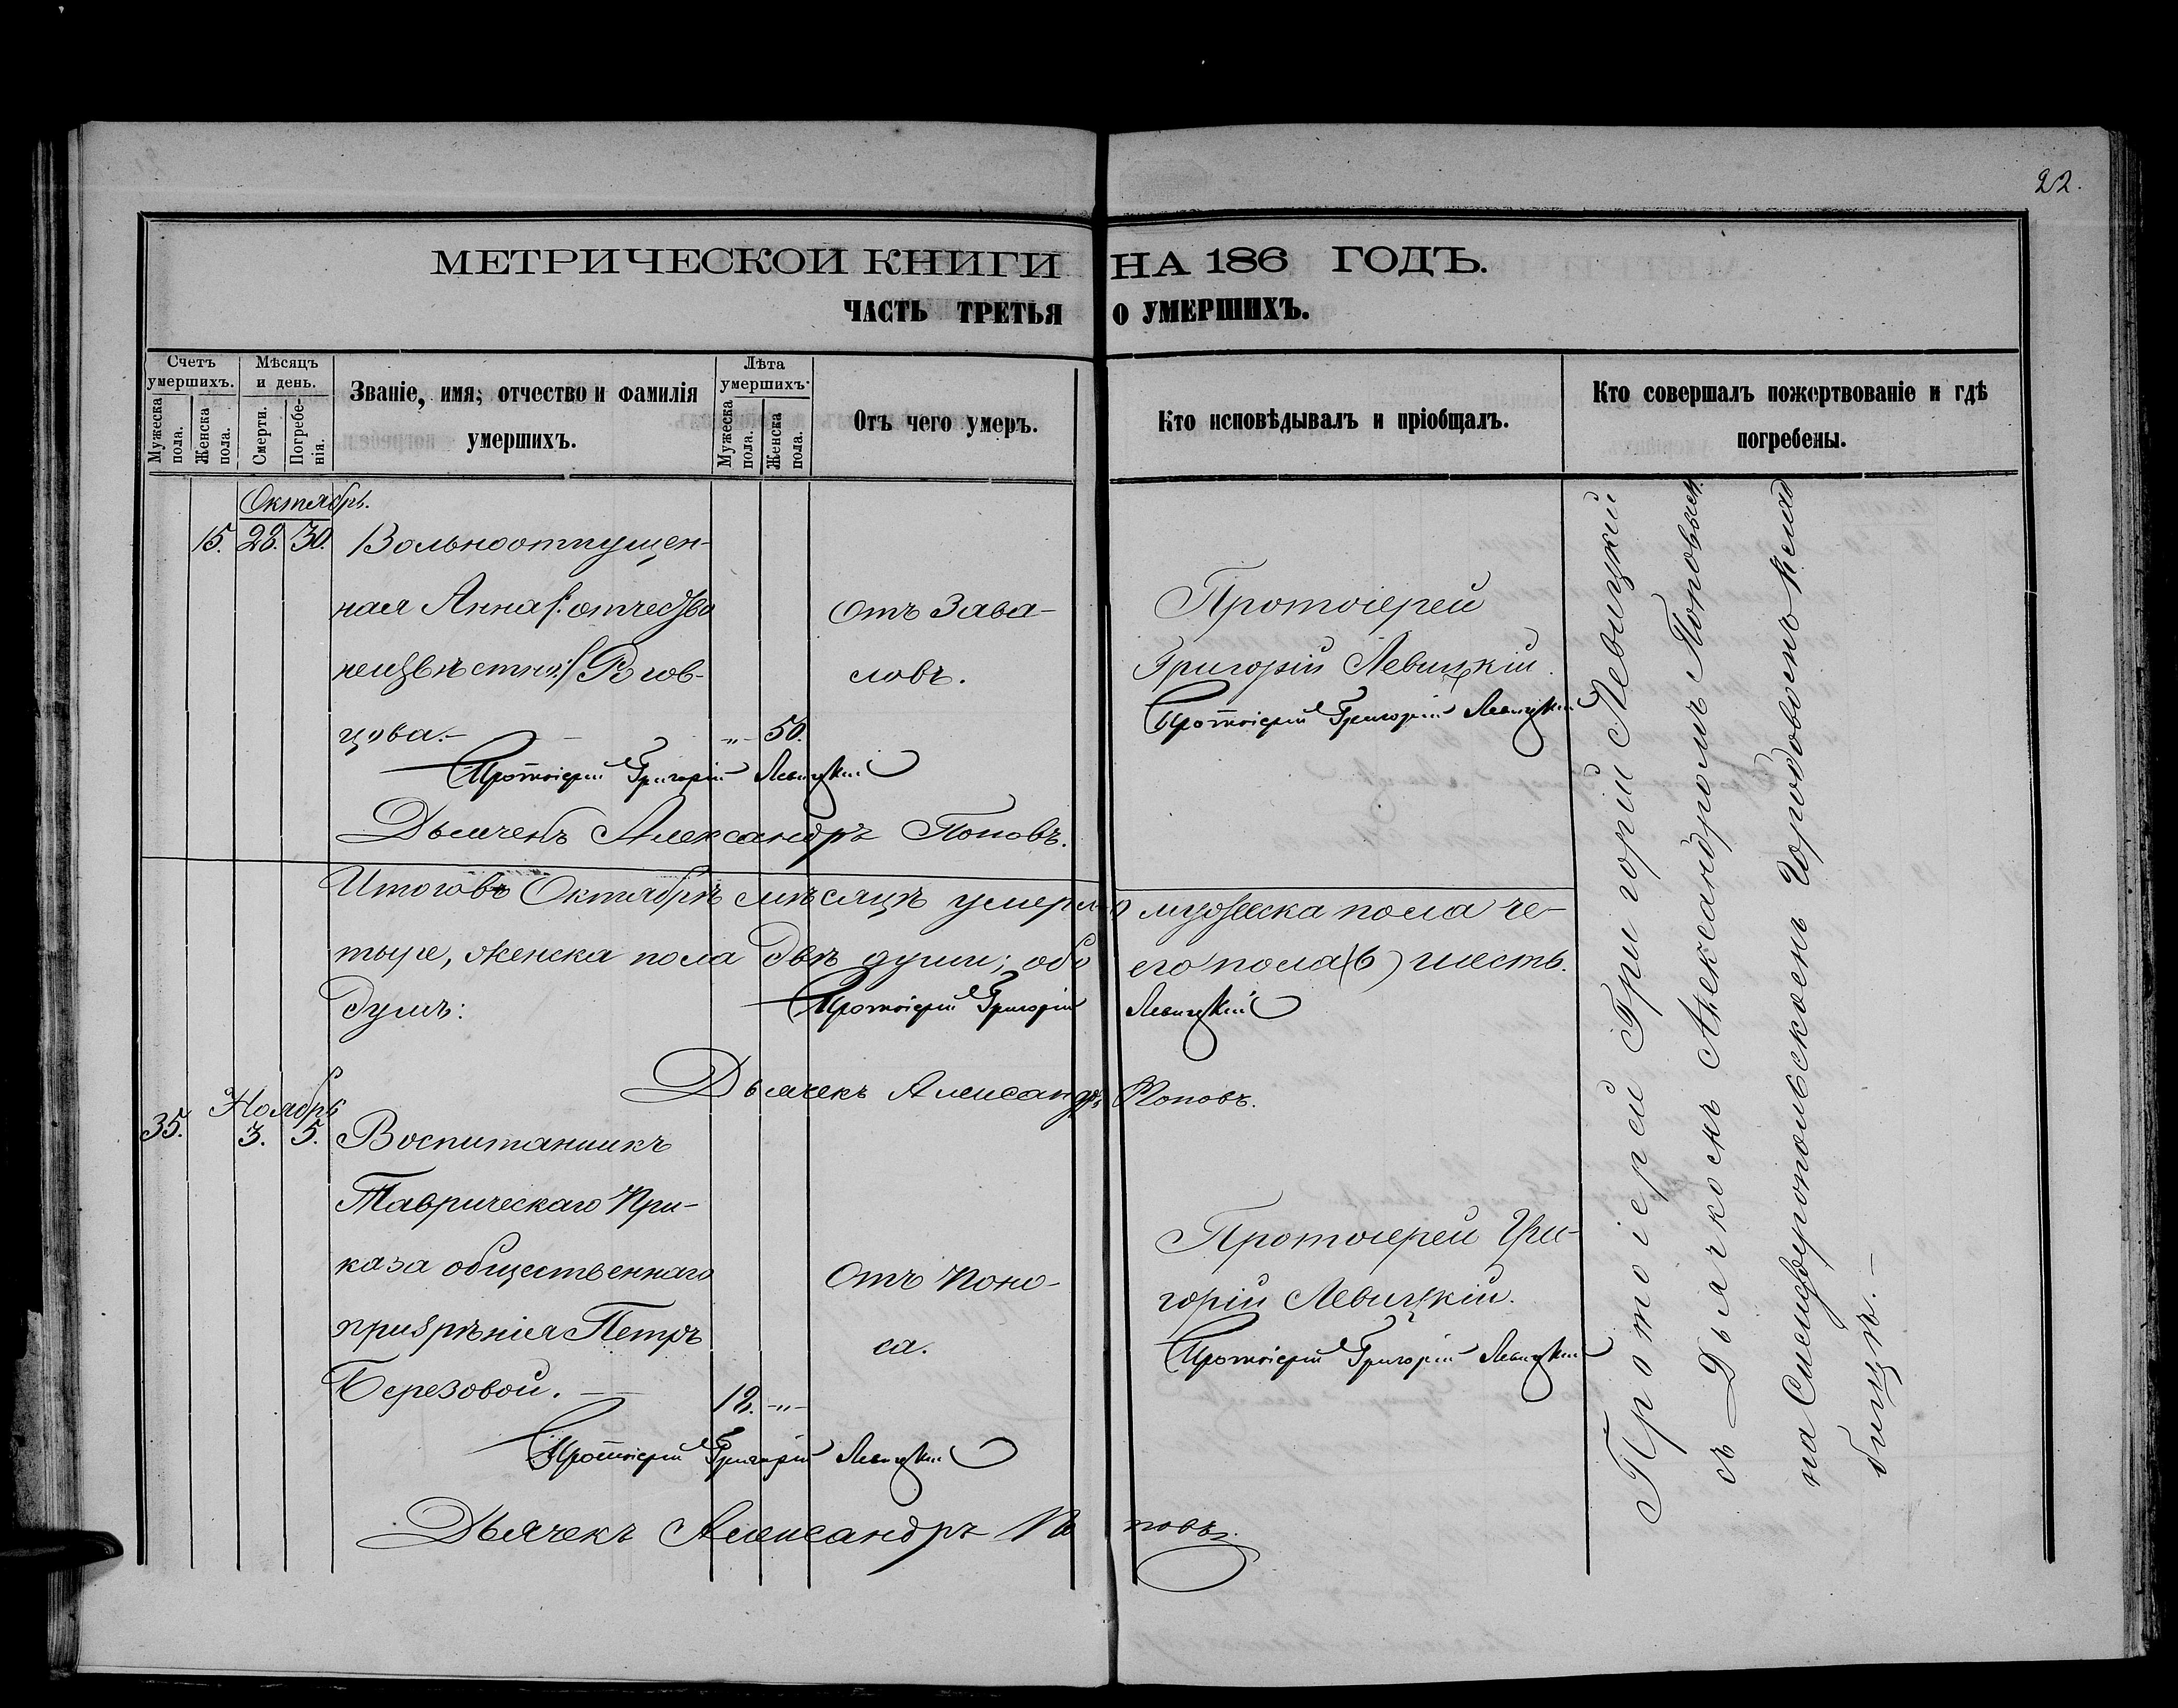 22.
МЕТРИЧЕСКОЙ КНИГИ НА 186 ГОДЪ.
ЧАСТЬ ТРЕТЬЯ О УМЕРШИХЪ.
Счетъ умершихъ.
Мужеска пола.
Женска пола.
Мѣсяцъ и день.
Смерти.
Погребенія.
Званіе, имя; отчество и фамилія
умершихъ.
Лѣта умершихъ.
Мужеска пола.
Женска пола.
Отъ чего умеръ.
Кто исповѣдывалъ и пріобщалъ.
Кто совершалъ пожертвованіе и гдѣ
погребены.
Октябрь.
15. 28. 30. Вольноотпущен-
ная Анна /: отчество
неизвѣстно :/
цова. - " - 50.
Отъ Зава-
ловъ.
Протоіерей
Григорій Левицкій.
Протоіерей Григорій Левицкій
Протоіерей Григорій Левицкій
Дьячекъ Александръ Поповъ.
Итого въ Октябрѣ мѣсяцѣ умерло мужеска пола че-
тыре, женска пола двѣ души; обоего пола (6) шесть
душъ:
Протоіерей Григорій Левицкій
Дьячекъ Александръ Поповъ.
Ноябрь
35. 3. 5. Воспитанникъ
Таврическаго При-
каза общественнаго
призрѣнія Петръ
Березовой. - 12. - " -
Отъ поно-
са.
Протоіерей Гри-
горій Левицкій.
Протоіерей Григорій Левицкій
Протоіерей Григорій Левицкій
Дьячекъ Александръ Поповъ.
Протоіерей Григорій Левицкій
съ Дьячкомъ Александромъ Поповымъ
на Симферопольскомъ Городовомъ Клад
бищѣ. -